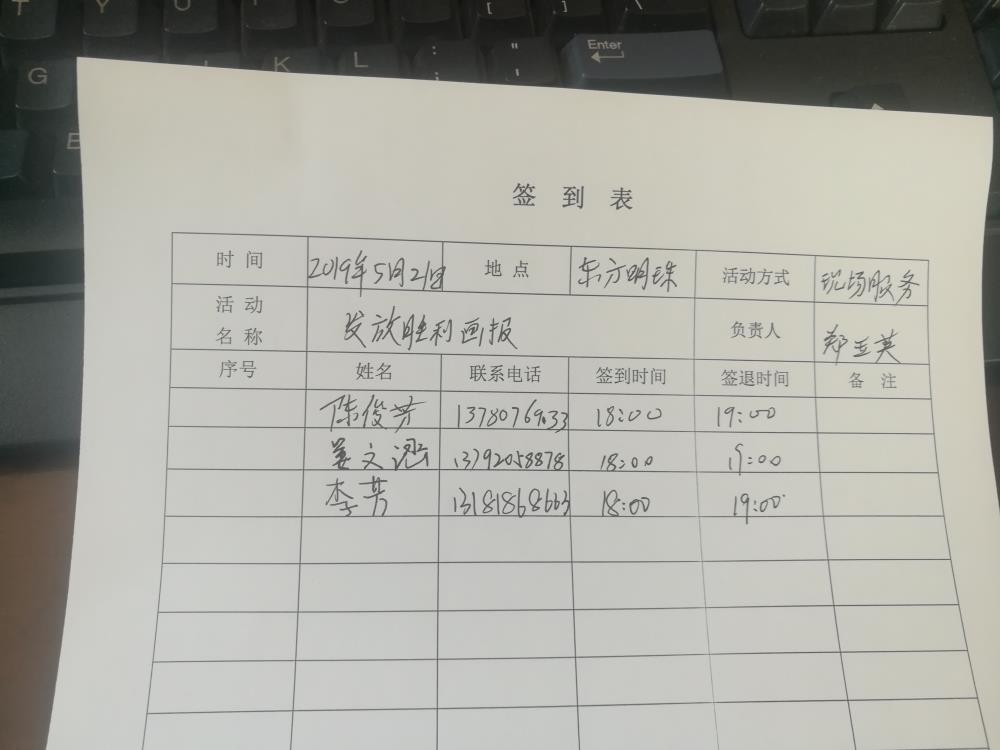 T Y U [ ]
G K L : ; " ' Enter
签 到 表
时 间 2019年5月21日 地 点 东方明珠 活动方式 现场服务
活 动 名 称 发放胜利画报 负责人 郑玉英
序号 姓名 联系电话 签到时间 签退时间 备 注
陈俊芳 13780769033 18:00 19:00
姜文 13792058878 18:00 19:00
李芳 13181868663 18:00 19:00